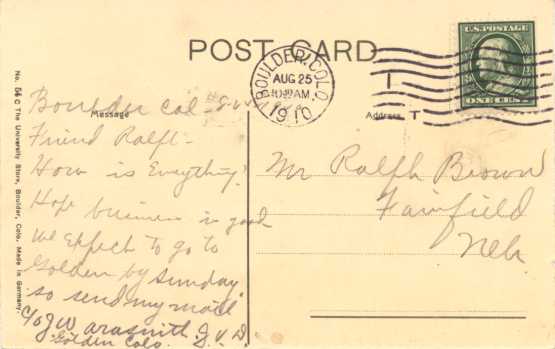 POST CARD
U.S. POSTAGE
ONE CENT
BOULDER, COLO.
AUG 25
AM
1910
No. 54 C The University Store, Boulder, Colo. Made in Germany.
Message
Address
Boulder Col -
Friend Ralph -
How is Everything?
Hope business is good
we Expect to go to
Golden by Sunday
so send my mail
c/o J W
Golden Colo.
Mr Ralph Brown
Fairfield
Neb